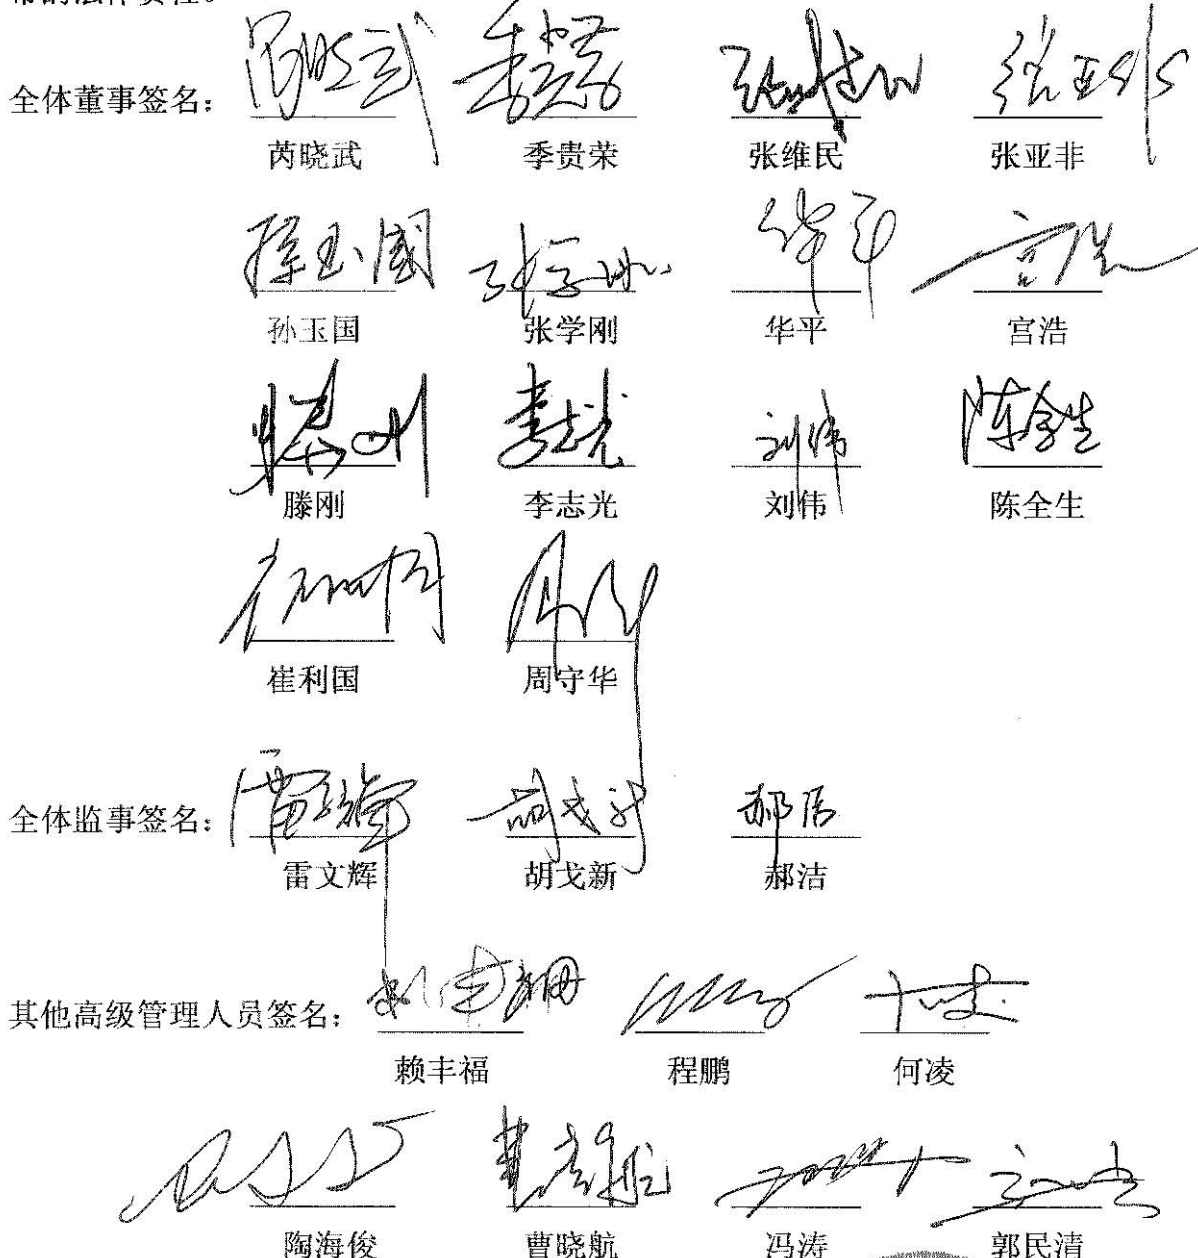 带的法律责任。
全体董事签名：
芮晓武 季贵荣 张维民 张亚非
孙玉国 张学刚 华平 宫浩
滕刚 李志光 刘伟 陈全生
崔利国 周守华
全体监事签名：
雷文辉 胡戈新 郝洁
其他高级管理人员签名：
赖丰福 程鹏 何凌
陶海俊 曹晓航 冯涛 郭民清